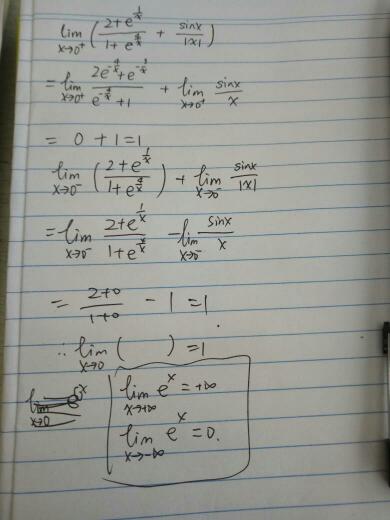 lim x→0⁺ ( (2+e^(1/x))/(1+e^(4/x)) + sinx/|x| )
= lim x→0⁺ (2e^(-4/x)+e^(-3/x))/(e^(-4/x)+1) + lim x→0⁺ sinx/x
= 0+1=1
lim x→0⁻ ( (2+e^(1/x))/(1+e^(4/x)) ) + lim x→0⁻ sinx/|x|
= lim x→0⁻ (2+e^(1/x))/(1+e^(4/x)) - lim x→0⁻ sinx/x
= (2+0)/(1+0) - 1 = 1.
∴ lim x→0 ( ) = 1
lim x→+∞ e^x = +∞
lim x→-∞ e^x = 0.